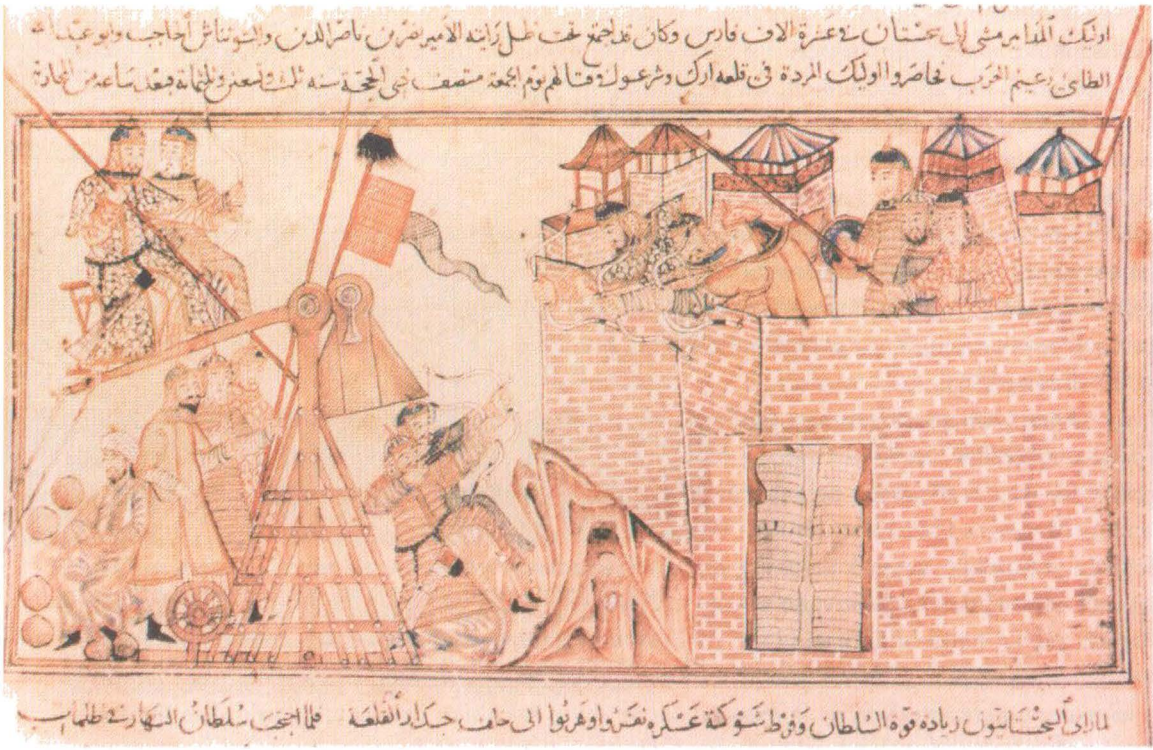 اوليك مشى الى سجستان في عشرة الاف فارس وكان قد اجتمع تحت ظل رايته الامير نصر بن ناصر الدين والتونتاش الحاجب وابو عبد الله
الطائى زعيم العرب فحاصروا اوليك المردة فى قلعه ارك وشرعوا في قتالهم يوم الجمعة منتصف ذى الحجة سنه ثلث وتسعين وثلثمائة فبعد ساعة من المحاربة
لما راى السجستانيون زياده قوة السلطان وفرط شوكة عسكره نفروا وهربوا الى خلف جدار القلعة فلما احتجب سلطان النهار في ظلمات